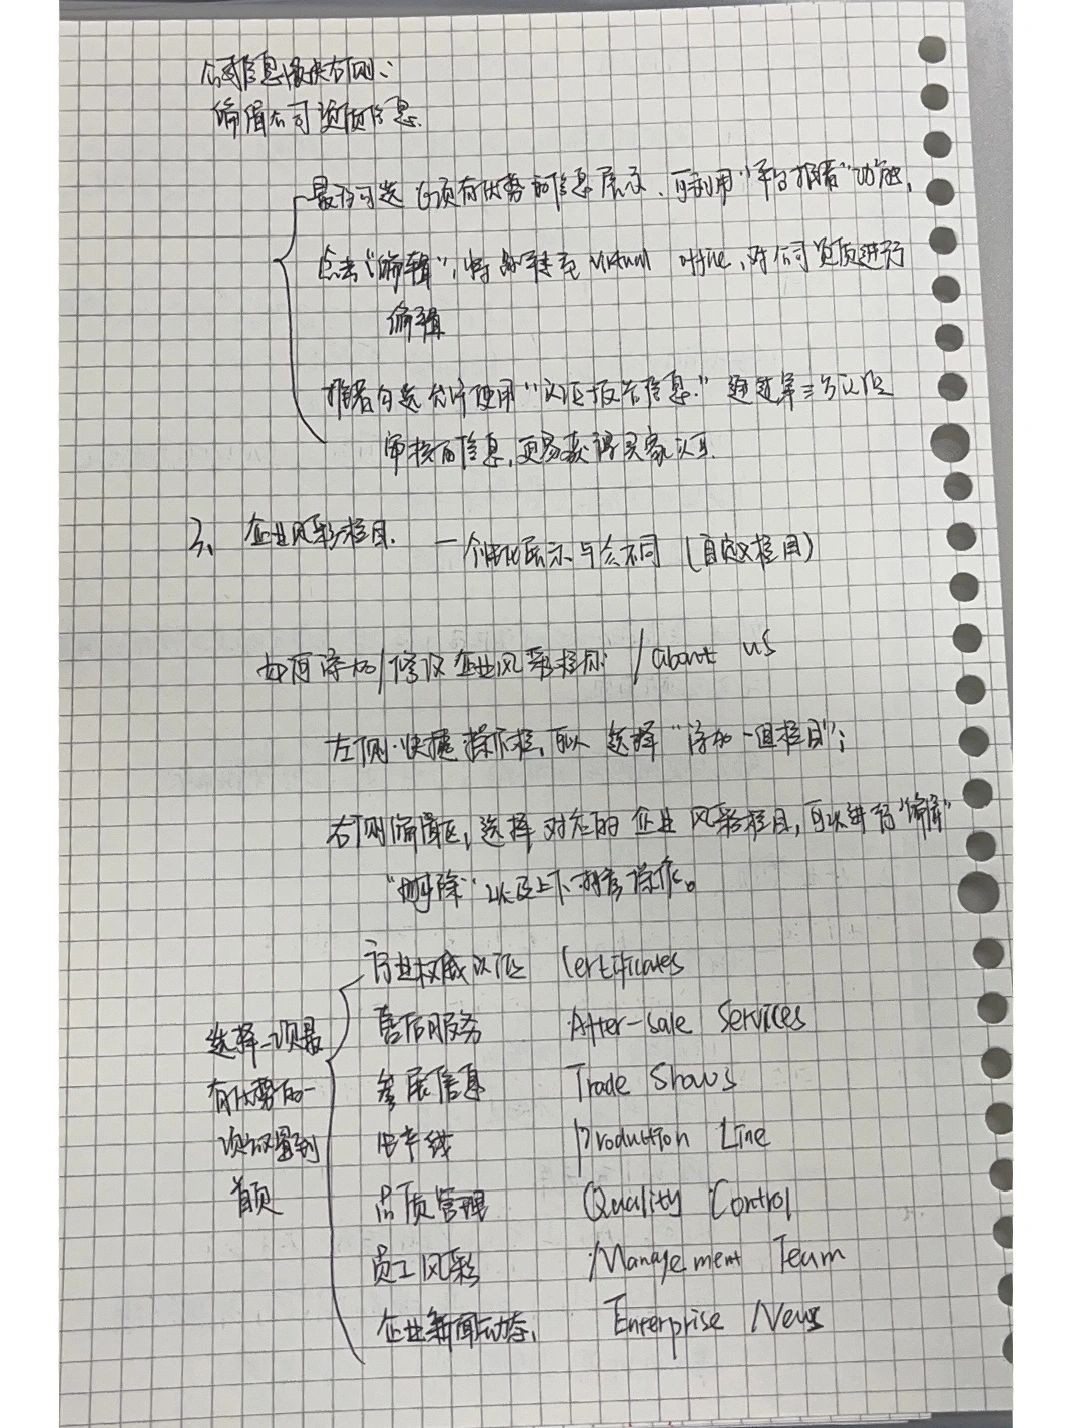 公司信息模块右侧、
编辑公司资质信息.
最多可选6项有优势的信息展示、可利用“平台推荐”功能,
点击“编辑”,将跳转至 virtual office、对公司资质进行
编辑
推荐勾选允许使用“认证报告信息.” 通过第三方认证
审核的信息, 更易获得买家认可.
3、企业风彩栏目. — 个性化展示与众不同 (自定义栏目)
如何添加/修改企业风彩栏目 / about us
左侧快捷操作栏, 可以选择“添加一组栏目”;
右侧编辑区, 选择对应的企业风彩栏目, 可以进行“编辑”
“删除”以及上下移 操作。
选择一项最
有优势的一
项 设置到
首页
行业权威认证 Certificates
售后服务 After-sale Services
参展信息 Trade Shows
生产线 Production Line
品质管理 Quality Control
员工风彩 Management Team
企业新闻动态、 Enterprise News